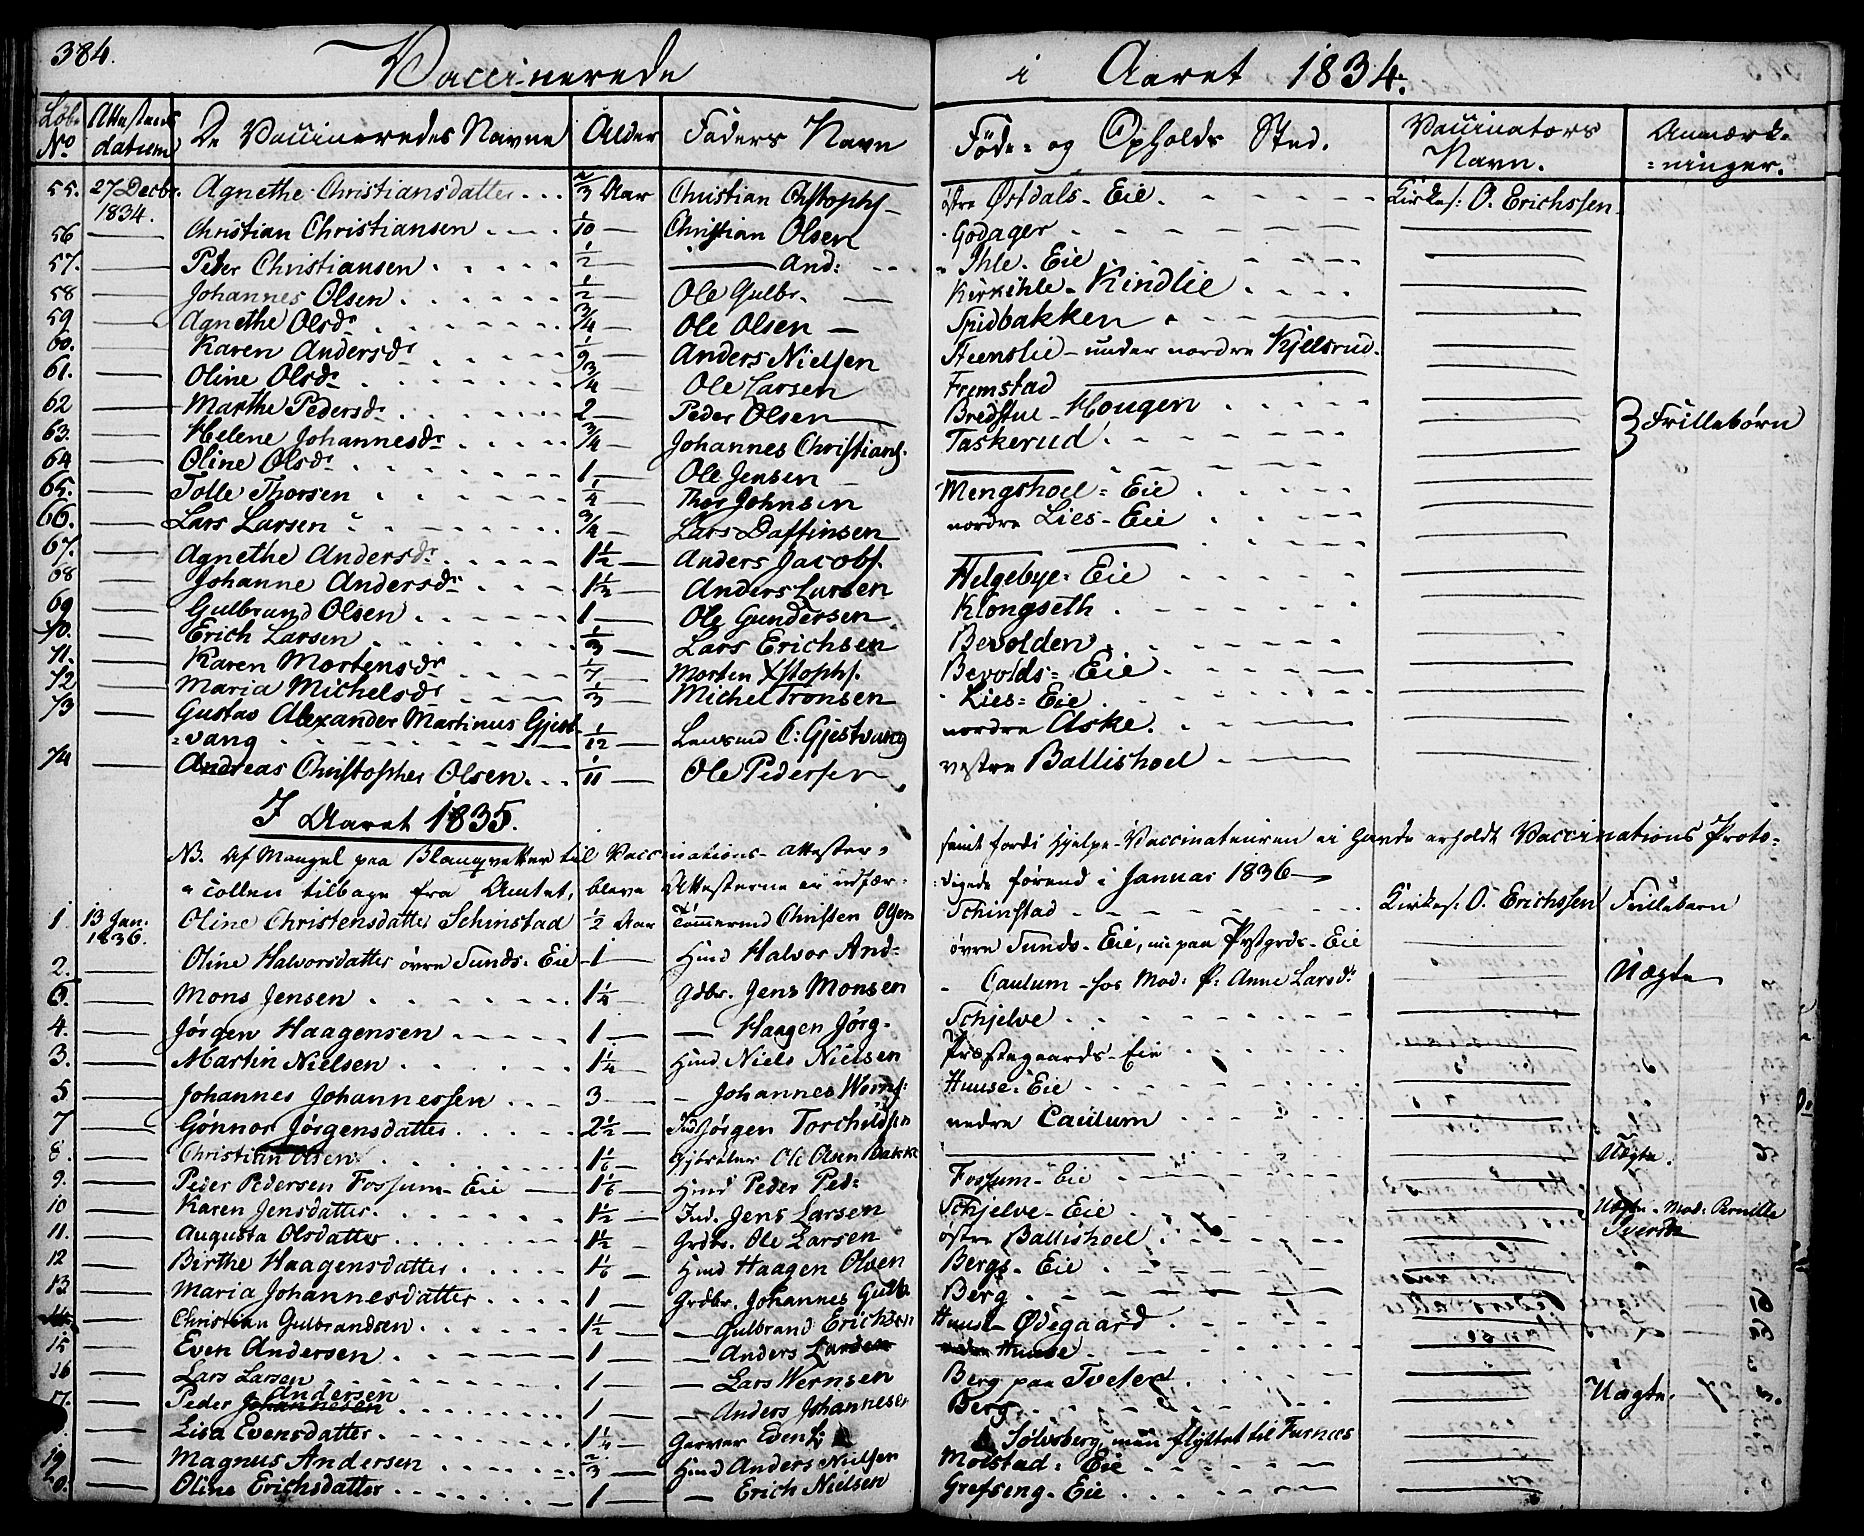 384.
Vaccinerede i Aaret 1834.
Løbe No Attestens datum De Vaccineredes Navne Alder Faders Navn Føde- og Opholds Sted. Vaccinators Navn. Anmærk-
=ninger.
55. 27 Decbr. 1834. Agnethe Christiansdatter 2/3 Aar Christian Chstophs- østre Østdals-Eie. Kirkes: O. Erichssen
56 — Christian Christiansen 1/10 — Christian Olsen Godager
57. — Peder Christiansen 1/2 — — And: Ihle-Eie
58 — Johannes Olsen 1/2 — Ole Gulbr. — Kirkihle-Kindlie
59 — Agnethe Olsdr 3/4 — Ole Olsen — Tridbakken
60. — Karen Andersdr Anders Nielsen Steenslie-under nordre Kjelsrud.
61. — Oline Olsdr 3/4 — Ole Larsen Fremstad
62 — Marthe Pedersdr 2 — Peder Olsen Bredstue-Hougen
63. — Helene Johannesdr 3/4 — Johannes Christians. Taskerud 3 Frillebørn
64 — Oline Olsdr 1 — Ole Jensen —
65. — Tolle Thorsen 1/4 — Thor Johnsen Mengshoel=Eie
66. — Lars Larsen 3/4 — Lars Daffinsen nordre Lies-Eie
67. — Agnethe Andersdr 1½ — Anders Jacobs. —
68 — Johanne Andersdr 1½ — Anders Larsen Helgebye=Eie
69 — Gulbrand Olsen 1 — Ole Gundersen Klongseth
70. — Erich Larsen 1/3 — Lars Erichsen Bevolden
71. — Karen Mortensdr 1/7 — Morten Xstophs. Bevolds=Eie
72 — Maria Michelsdr 1/3 — Michel Tronsen Lies=Eie
73 — Gustav Alexander Martinus Gjest-
=vang 1/12 — Lensmd C: Gjestvang nordre Aske.
74 — Andreas Christopher Olsen 1/11 — Ole Pedersen vestre Ballishoel
I Aaret 1835.
NB. Af Mangel paa Blanqvetter til Vaccinations-Attester, samt fordi Hjelpe-Vaccinateuren ei havde erholdt Vaccinations Proto=
=collen tilbage fra Amtet, bleve Attesterne ei udfær-
=digede førend i Januar 1836 —
1. 13 Jan. 1836. Oline Christensdatter Schinstad ½ Aar Tømmermd Christen Olsen Schinstad Kirkes: O. Erichssen Frillebarn
2. — Oline Halvorsdatter øvre Sunds-Eie 1 — Hmd Halvor And- øvre Sunds-Eie, nu paa Pstgrds-Eie
— Mons Jensen 1¼ — Gdbr. Jens Monsen Caulum-hos Mod: F: Anne Larsdr Uægte
4. — Jørgen Haagensen 1 — — Haagen Jørg- Schjelve
3. — Martin Nielsen 1¼ Hmd Niels Nielsen Præstegaards-Eie
5 — Johannes Johannessen 3 — - Johannes Werns: Huuse-Eie
7 — Gønnor Jørgensdatter 2½ — Ind Jørgen Torchildsen nedre Caulum
8. — Christian Olsen 1⅙ — Ole Olsen Bakke — Uægte.
9. — Peder Pedersen Fossum-Eie 1⅙ — Hmd Peder Ped: Fossum-Eie
10 — Karen Jensdatter 1½ — Ind. Jens Larsen Schjelve-Eie Uægte-Mod: Pernille
11. — Augusta Olsdatter 1½ — Grdbr. Ole Larsen østre Ballishoel
12 — Birthe Haagensdatter 1⅙ — Hmd Haagen Olsen Bergs-Eie
13 — Maria Johannesdatter 1 — Grdbr. Johannes Gulb. Berg
— Christian Gulbrandsen 1½ — Gulbrand Erichsen Huuse-Ødegaard
15 — Even Andersen 1 — — Anders Larsen Huuse
16 — Lars Larsen 1 — — Lars Wernsen Berg paa Tveten
17. — Peder Johannesen Andersen 1 — — Anders Johannesen Berg Uægte.
— Lisa Evensdatter 1¼ — Garver Even Sølvsberg, men flyttet til Furnees
19 — Magnus Andersen 2/3 — Hmd Anders Nielsen Molstad-Eie
— Oline Erichsdatter 1 — — Erich Nielsen Grefseng-Eie